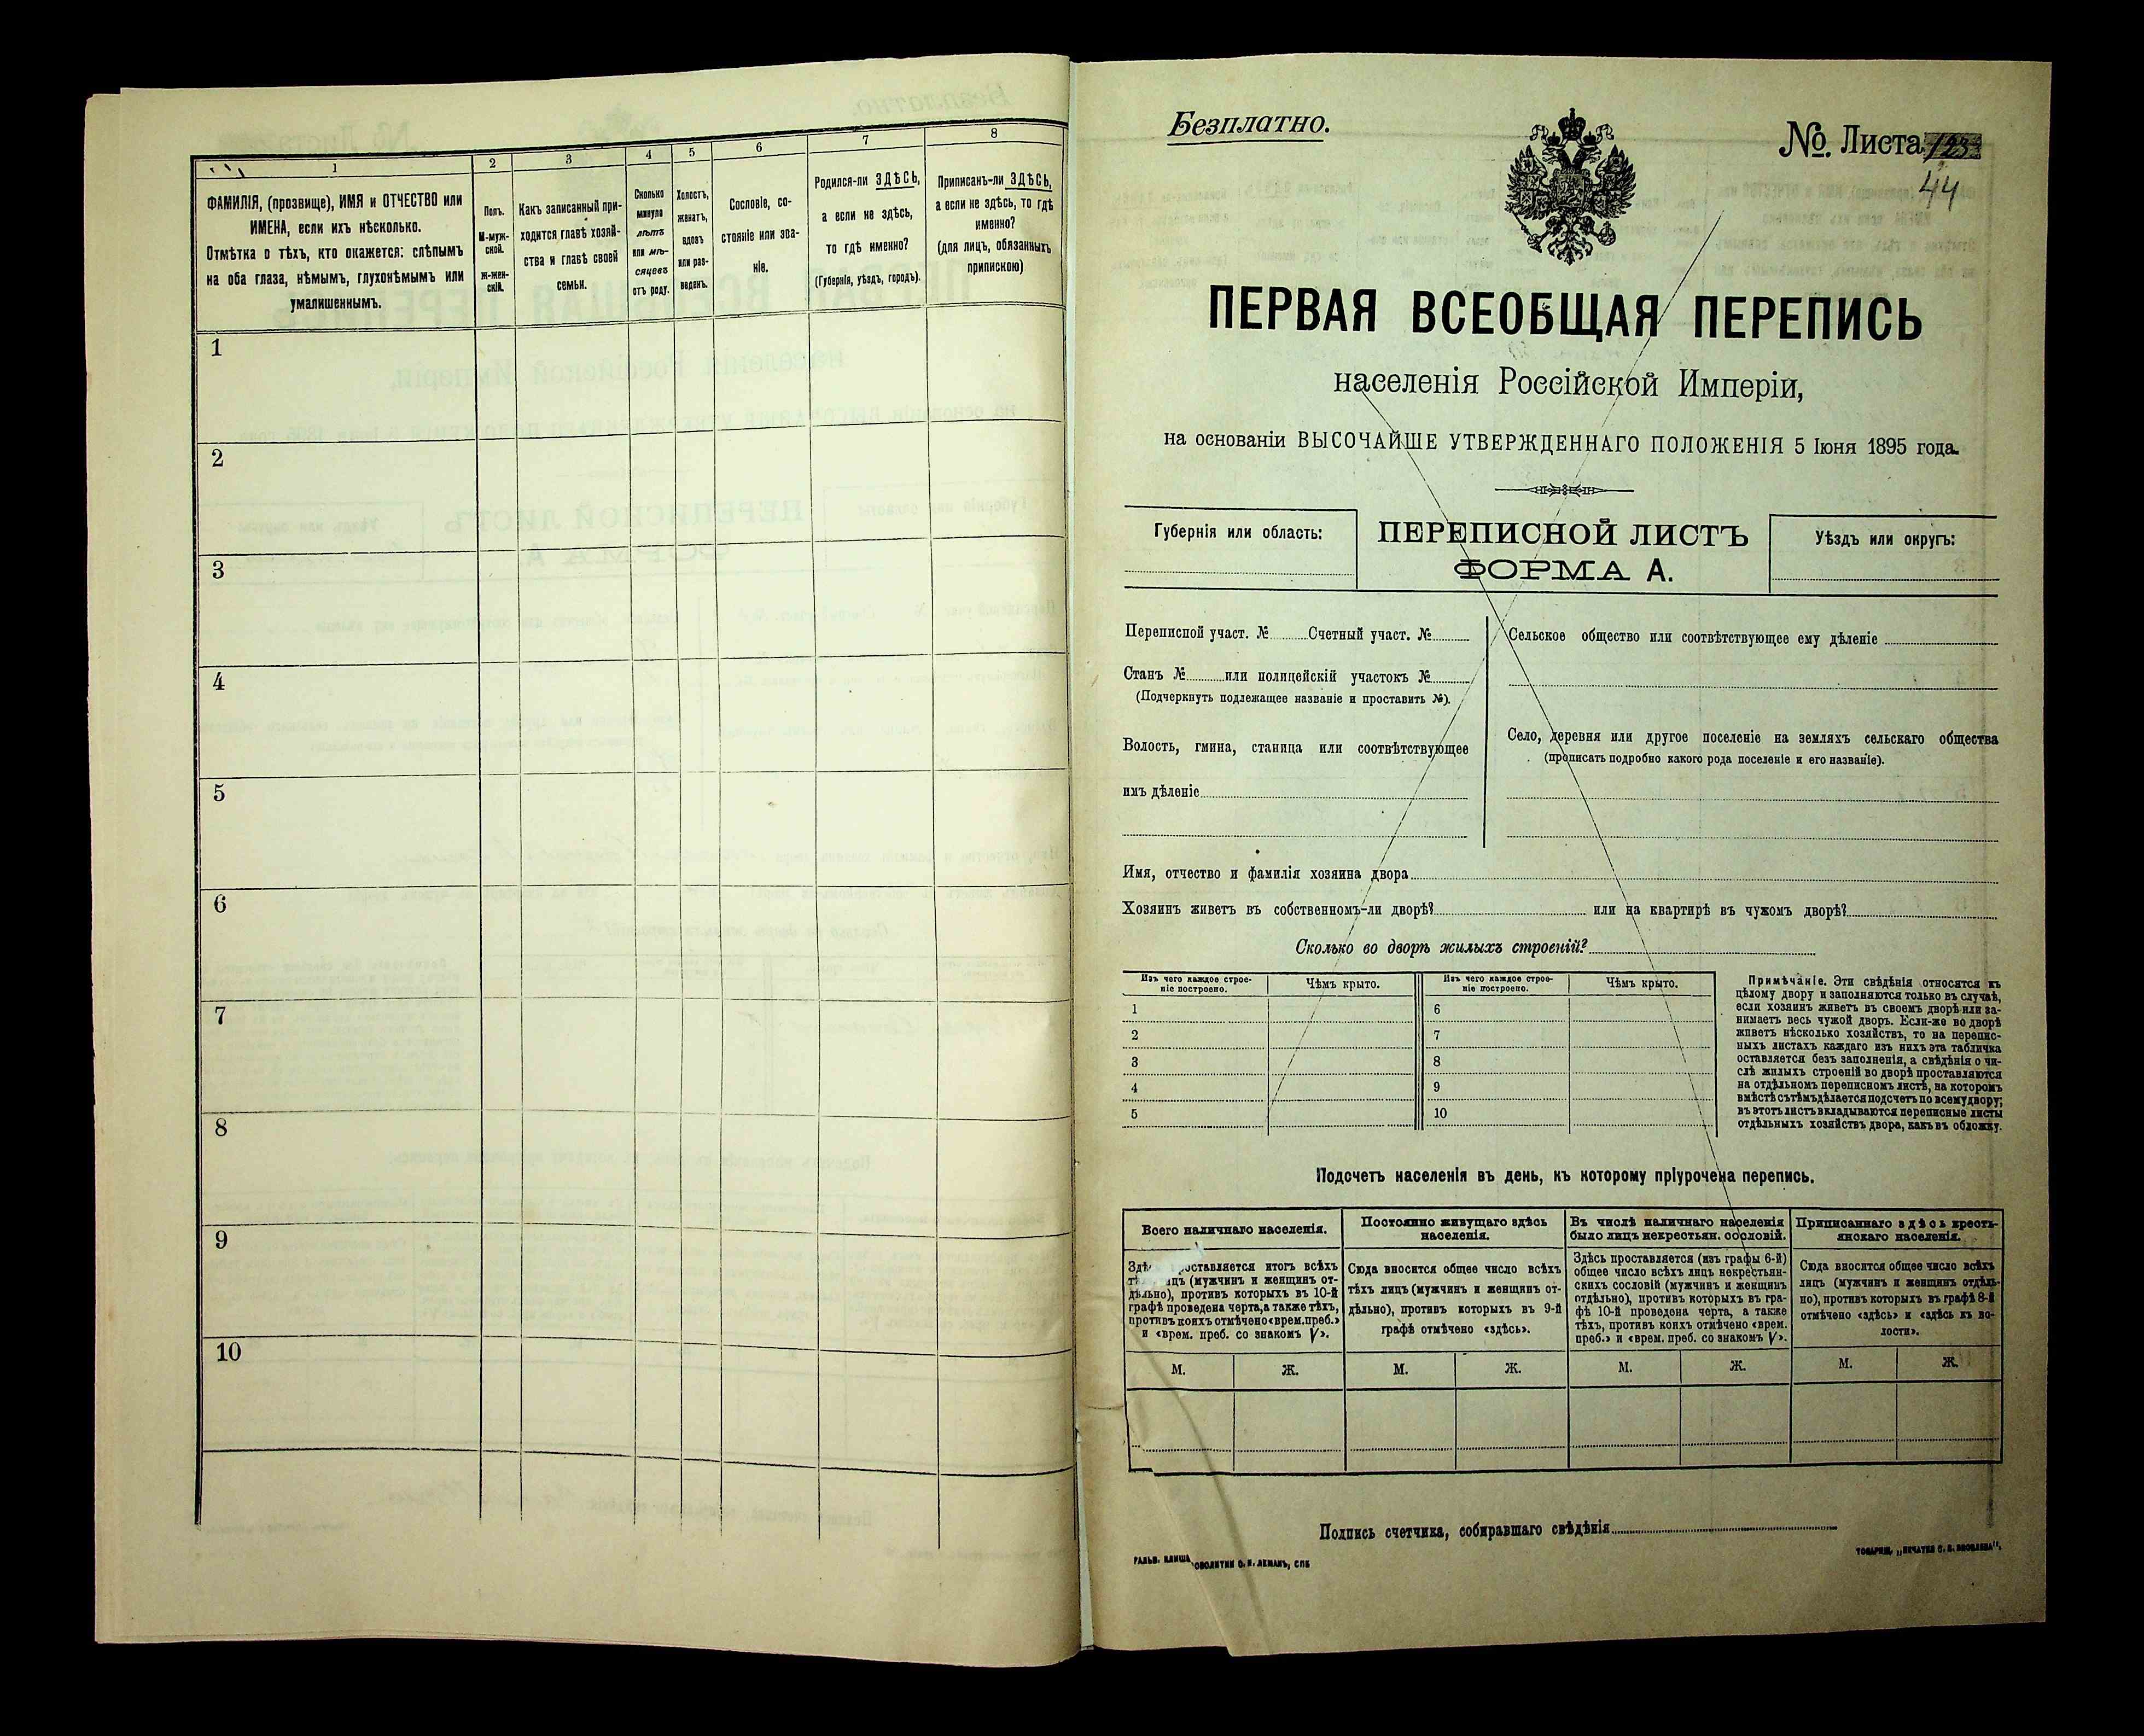 1
2
3
4
5
6
7
8
ФАМИЛІЯ, (прозвище), ИМЯ и ОТЧЕСТВО или
ИМЕНА, если ихъ нѣсколько.
Отмѣтка о тѣхъ, кто окажется: слѣпымъ
на оба глаза, нѣмымъ, глухонѣмымъ или
умалишеннымъ.
Полъ.
М-муж-
ской.
Ж-жен-
скій.
Какъ записанный при-
ходится главѣ хозяй-
ства и главѣ своей
семьи.
Сколько
минуло
лѣтъ
или мѣ-
сяцевъ
отъ роду.
Холостъ,
женатъ,
вдовъ
или раз-
веденъ.
Сословіе, со-
стояніе или зва-
ніе.
Родился-ли ЗДѢСЬ,
а если не здѣсь,
то гдѣ именно?
(Губернія, уѣздъ, городъ).
Приписанъ-ли ЗДѢСЬ,
а если не здѣсь, то гдѣ
именно?
(для лицъ, обязанныхъ
припискою)
1
2
3
4
5
6
7
8
9
10
Безплатно.
№. Листа
44
ПЕРВАЯ ВСЕОБЩАЯ ПЕРЕПИСЬ
населенія Россійской Имперіи,
на основаніи ВЫСОЧАЙШЕ УТВЕРЖДЕННАГО ПОЛОЖЕНІЯ 5 Іюня 1895 года.
Губернія или область:
ПЕРЕПИСНОЙ ЛИСТЪ
ФОРМА А.
Уѣздъ или округъ:
Переписной участ. № Счетный участ. №
Станъ № или полицейскій участокъ №
(Подчеркнуть подлежащее названіе и проставить №).
Волость, гмина, станица или соотвѣтствующее
имъ дѣленіе
Сельское общество или соотвѣтствующее ему дѣленіе
Село, деревня или другое поселеніе на земляхъ сельскаго общества
(прописать подробно какого рода поселеніе и его названіе).
Имя, отчество и фамилія хозяина двора
Хозяинъ живетъ въ собственномъ-ли дворѣ? или на квартирѣ въ чужомъ дворѣ?
Сколько во дворѣ жилыхъ строеній?
Изъ чего каждое строе-
ніе построено.
Чѣмъ крыто.
Изъ чего каждое строе-
ніе построено.
Чѣмъ крыто.
1
2
3
4
5
6
7
8
9
10
Примѣчаніе. Эти свѣдѣнія относятся къ
цѣлому двору и заполняются только въ случаѣ,
если хозяинъ живетъ въ своемъ дворѣ или за-
нимаетъ весь чужой дворъ. Если-же во дворѣ
живетъ нѣсколько хозяйствъ, то на перепис-
ныхъ листахъ каждаго изъ нихъ эта табличка
оставляется безъ заполненія, а свѣдѣнія о чи-
слѣ жилыхъ строеній во дворѣ проставляются
на отдѣльномъ переписномъ листѣ, на которомъ
вмѣстѣ съ тѣмъ дѣлается подсчетъ по всему двору;
въ этотъ листъ вкладываются переписные листы
отдѣльныхъ хозяйствъ двора, какъ въ обложку.
Подсчетъ населенія въ день, къ которому пріурочена перепись.
Всего наличнаго населенія.
Постоянно живущаго здѣсь
населенія.
Въ числѣ наличнаго населенія
было лицъ некрестьян. сословій.
Приписаннаго здѣсь кресть-
янскаго населенія.
проставляется итогъ всѣхъ
лицъ (мужчинъ и женщинъ от-
дѣльно), противъ которыхъ въ 10-й
графѣ проведена черта, а также тѣхъ,
противъ коихъ отмѣчено «врем. преб.»
и «врем. преб. со знакомъ V».
Сюда вносится общее число всѣхъ
тѣхъ лицъ (мужчинъ и женщинъ от-
дѣльно), противъ которыхъ въ 9-й
графѣ отмѣчено «здѣсь».
Здѣсь проставляется (изъ графы 6-й)
общее число всѣхъ лицъ некрестьян-
скихъ сословій (мужчинъ и женщинъ
отдѣльно), противъ которыхъ въ гра-
фѣ 10-й проведена черта, а также
тѣхъ, противъ коихъ отмѣчено «врем.
преб.» и «врем. преб. со знакомъ V».
Сюда вносится общее число всѣхъ
лицъ (мужчинъ и женщинъ отдѣль-
но), противъ которыхъ въ графѣ 8-й
отмѣчено «здѣсь» и «здѣсь къ во-
лости».
М.
Ж.
М.
Ж.
М.
Ж.
М.
Ж.
Подпись счетчика, собиравшаго свѣдѣнія